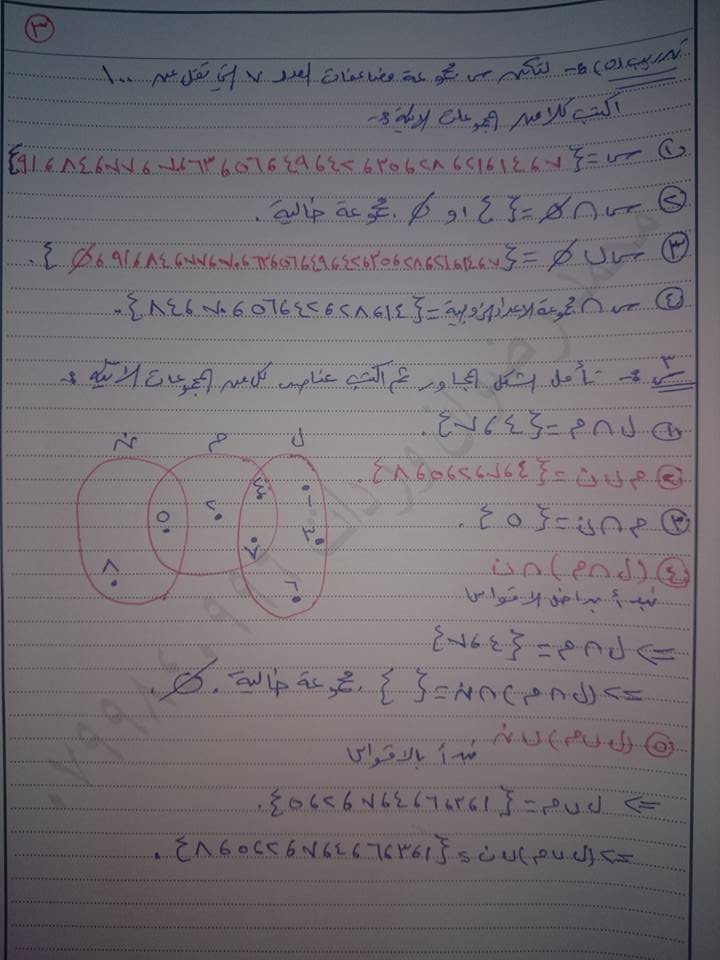 ٣
تدريب (٥) :- لتكن س مجموعة مضاعفات العدد ٧ التي تقل عن ١٠٠
اكتب كلا من المجموعات الآتية :-
١) س = {٧، ١٤، ٢١، ٢٨، ٣٥، ٤٢، ٤٩، ٥٦، ٦٣، ٧٠، ٧٧، ٨٤، ٩١}
٢) س ∩ Ø = { } او Ø . مجموعة خالية .
٣) س ∪ Ø = {٧، ١٤، ٢١، ٢٨، ٣٥، ٤٢، ٤٩، ٥٦، ٦٣، ٧٠، ٧٧، ٨٤، ٩١، Ø} .
٤) س ∩ مجموعة الاعداد الزوجية = {١٤، ٢٨، ٤٢، ٥٦، ٧٠، ٨٤} .
س٣ :- تأمل الشكل المجاور ثم اكتب عناصر كل من المجموعات الاتية :-
١) ل ∩ م = {٤، ٧} .
٢) م ∪ ن = {٤، ٧، ٢، ٥، ٨} .
٣) م ∩ ن = {٥} .
٤) (ل ∩ م) ∩ ن
نبدأ بداخل الاقواس
=> ل ∩ م = {٤، ٧}
=> (ل ∩ م) ∩ ن = { } . مجموعة خالية . Ø .
٥) (ل ∪ م) ∪ ن
نبدأ بالاقواس
=> ل ∪ م = {١، ٣، ٦، ٤، ٧، ٢، ٥} .
=> (ل ∪ م) ∪ ن = {١، ٣، ٦، ٤، ٧، ٢، ٥، ٨} .
ل م ن
١ ٣ ٦ ٤ ٧ ٢ ٥ ٨
محمد رضوان وردات